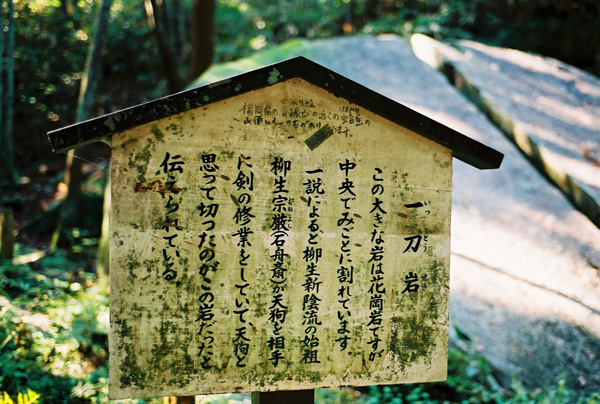 一刀岩
いっとう
この大きな岩は花崗岩ですが
中央でみごとに割れています。
一説によると柳生新陰流の始祖
柳生宗厳(石舟斎)が天狗を相手
に剣の修業をしていて、天狗と
思って切ったのがこの岩だったと
伝えられている